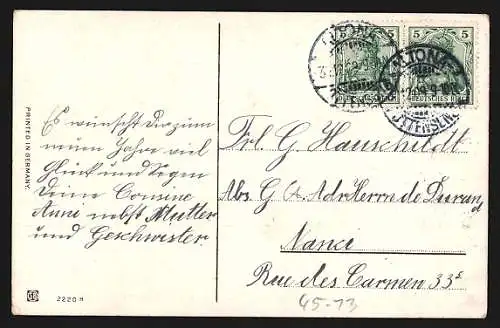 PRINTED IN GERMANY.
5 5
ALTONA
ALTONA
OTTENSEN
DEUTSCHES REICH
Es wünscht Dir zum
neuen Jahre viel
Glück und Segen
Deine Cousine
Anni nebst Mutter
und Geschwister
Frl. G Hauschildt
Abs. G A. Adr. Herrn de Durand
Nanci
Rue des Carmen 33
45-73
2220